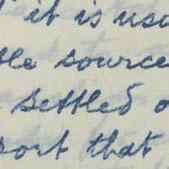 it is usa
le source
settled o
port that